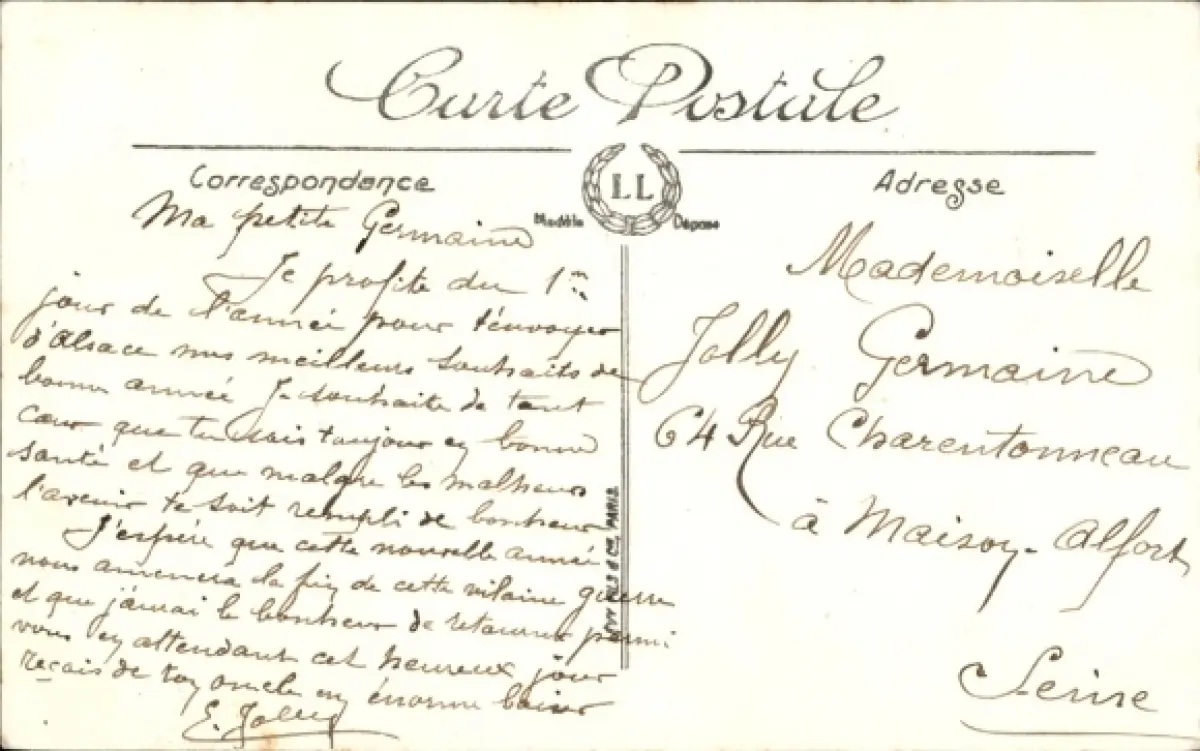 Carte Postale
Correspondance
LL
Modèle Déposé
Adresse
Ma petite Germaine
Je profite du 1er
jour de l'année pour t'envoyer
d'Alsace mes meilleurs souhaits de
bonne année Je souhaite de tout
cœur que tu sois toujour en bonne
santé et que malgre les malheurs
l'avenir te soit rempli de bonheur
J'espère que cette nouvelle année
nous amenera la fin de cette vilaine guerre
et que j'aurai le bonheur de retourner parmi
vous en attendant cet heureux jour
reçois de ton oncle un énorme baiser
E. Jolly
LEVY FILS & Cie, PARIS
Mademoiselle
Jolly Germaine
64 Rue Charentonneau
à Maison-Alfort
Seine